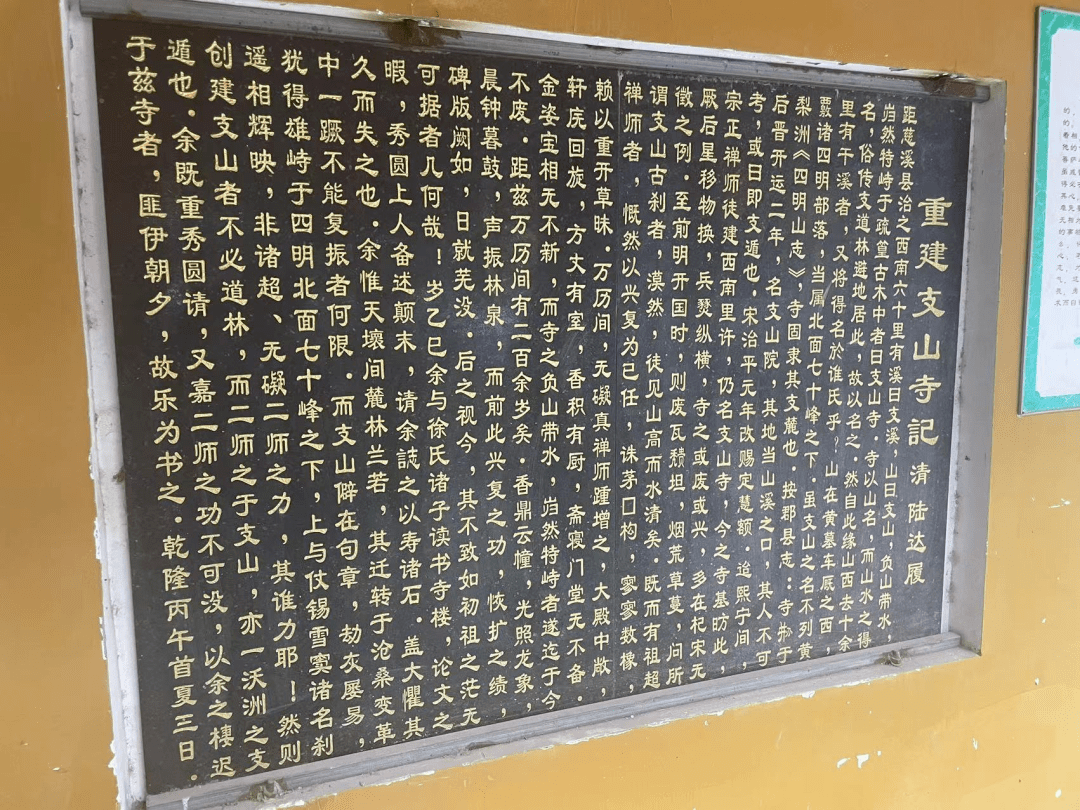 重建支山寺記 清 陆达履
距慈溪县治之西南六十里有溪曰支溪，山曰支山，负山带水，
岿然特峙于疏篁古木中者曰支山寺．寺以山名，而山水之得
名，俗传支道林避地居此，故以名之．然自此缘山西去十余
里有干溪者，又将得名於谁氏乎？山在黄墓车厩之西，
覈诸四明部落，当属北面七十峰之下．虽支山之名不列黄
梨洲《四明山志》，寺固隶其支麓也．按郡县志：寺于
后晋开运二年，名支山院，其地当山溪之口，其人不可
考，或曰即支遁也．宋治平元年改赐定慧额．迨熙宁间，
宗正禅师徒建西南里许，仍名支山寺，今之寺基昉此，
厥后星移物换，兵燹纵横，寺之或废或兴，多在杞宋无
徵之例．至前明开国时，则废瓦颓坦，烟荒草蔓，问所
谓支山古刹者，漠然，徒见山高而水清矣．既而有祖超
禅师者，慨然以兴复为己任，诛茅口构，寥寥数椽，
赖以重开草昧．万历间，无礙真禅师踵增之，大殿中敞，
轩庑回族，方丈有室，香积有厨，斋寝门堂无不备．
金姿宝相无不新，而寺之负山带水，岿然特峙者遂迄于今
不废．距兹万历间有二百余岁矣．香鼎云幢，光照龙象，
晨钟暮鼓，声振林泉，而前此兴复之功，恢扩之绩，
碑版阙如，日就芜没．后之视今，其不致如初祖之茫无
可据者几何哉！岁乙巳余与徐氏诸子读书寺楼，论文之
暇，秀圆上人备述颠末，请余誌之以寿诸石．盖大懼其
久而失之也．余惟天壤间麓林兰若，其迁转于沧桑变革
中一蹶不能复振者何限．而支山僻在句章，劫灰屡易，
犹得雄峙于四明北面七十峰之下，上与仗锡雪窦诸名刹
遥相辉映，非诸超、无礙二师之力，其谁力耶！然则
创建支山者不必道林，而二师之于支山，亦一沃洲之支
遁也．余既重秀圆请，又嘉二师之功不可没，以余之棲迟
于兹寺者，匪伊朝夕，故乐为书之．乾隆丙午首夏三日．